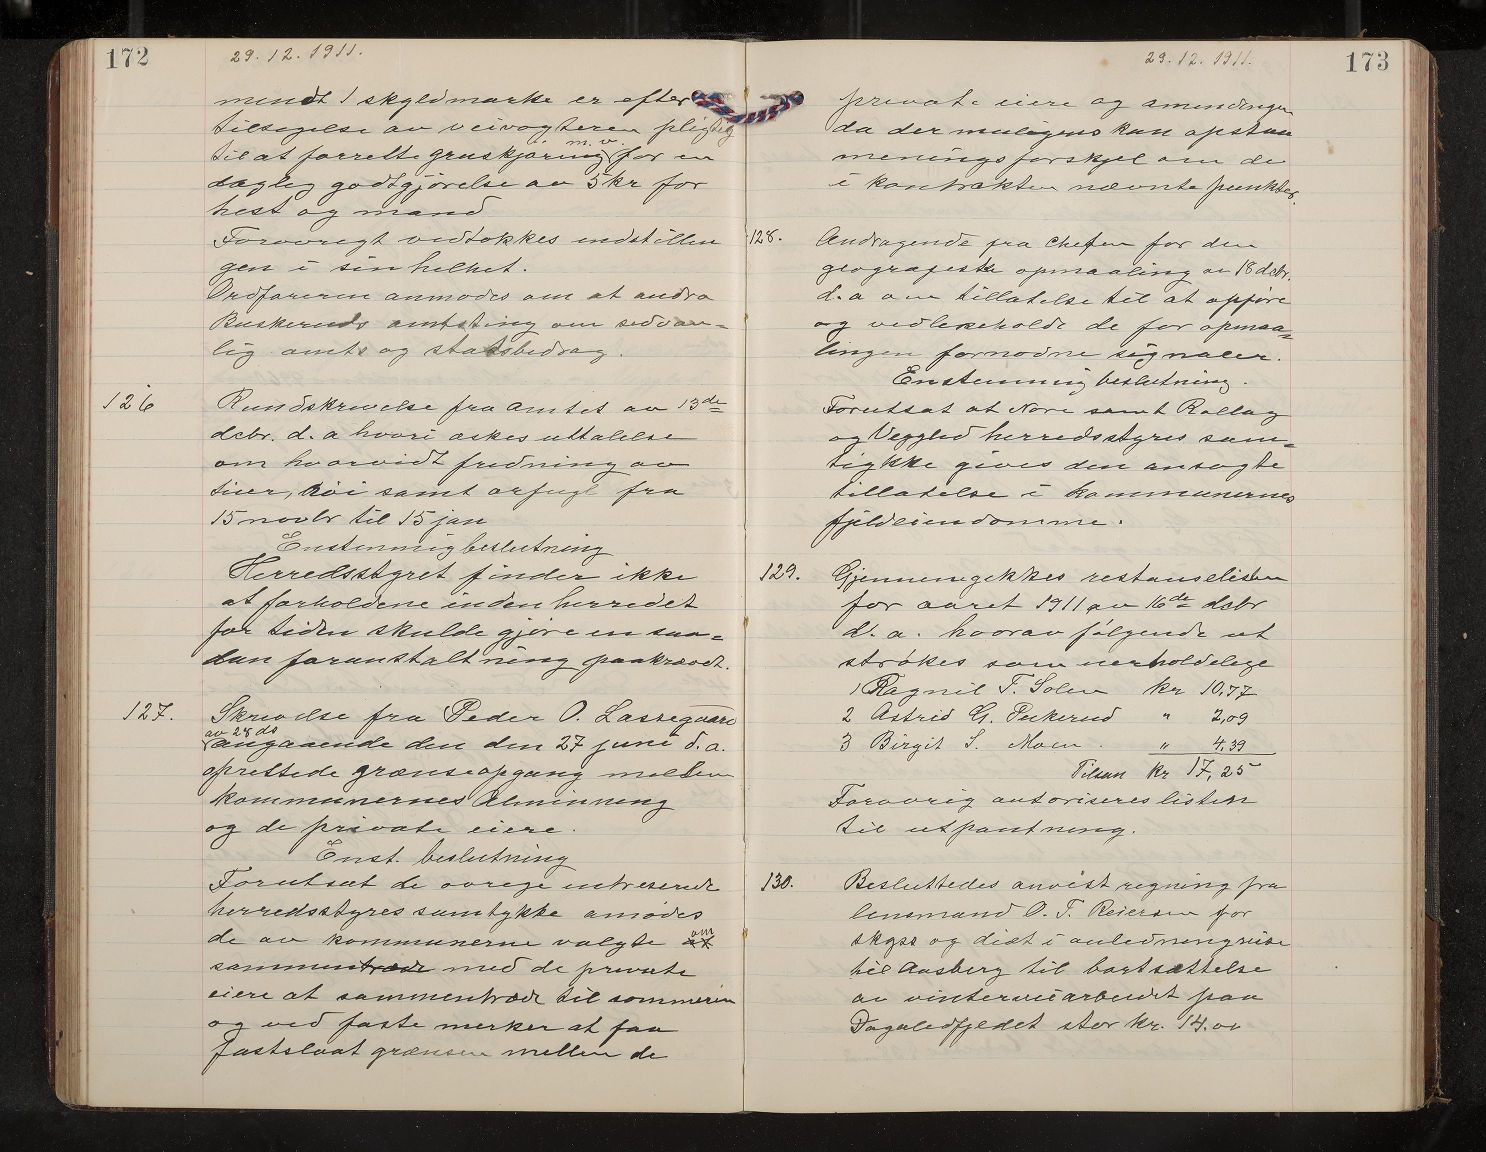 172
29.12.1911.
mindst 1 skyldmarke er efter
tilsigelse av veivogteren pligtig
m.v.
til at forrette gruskjøring for en
daglig godtgjørelse av 5 kr for
hest og mand
Forøvrigt vedtokkes indstillin
gen i sin helhet.
Ordføreren anmodes om at andra
Buskeruds amtsting om sedvan=
lig amts og statsbidrag.
126
Rundskrivelse fra amtet av 13de
dcbr. d.a hvori æskes uttalelse
om hvorvidt fredning av
tiur, røi samt orfugl fra
15 novbr til 15 jan
Enstemmig beslutning
Herredsstyret finder ikke
at forholdene inden herredet
for tiden skulde gjøre en saa=
dan foranstaltning paakrævet.
127.
Skrivelse fra Peder O. Lassegaard
av 28 ds
angaaende den den 27 juni d.a.
oprettede grænseopgang mellem
kommunernes Alminning
og de private eiere.
Enst. beslutning
Forutsat de øvrige intreserede
herredsstyres samtykke amodes
de av kommunerne valgte at om
sammentræde med de private
eiere at sammentræde til sommeren
og ved faste merker at faa
fastslaat grænsen mellem de
29.12.1911.
173
private eiere og amindingen
da der muligens kan opstaa
meningsforskjel om de
i kontrakten nævnte punkter.
128.
Andragende fra chefen for den
geografiske opmaaling av 18 dcbr.
d.a om tillatelse til at opføre
og vedlikeholde de for opmaa=
lingen fornødne signaler.
Enstemmig beslutning.
Forutsat at Nore samt Rollag
og Veggli herredsstyres sam=
tykke gives den ansøgte
tillatelse i kommunernes
fjeldeiendomme.
129.
Gjennemgikkes restanselisten
for aaret 1911 av 16de dcbr
d.a. hvorav følgende ut
strøkes som uerholdelige
1 Ragnil T. Solem kr 10,77
2 Astrid G. Pukerud " 2,09
3 Birgit S. Moen. " 4,39
Tilsam kr 17,25
Forøvrig autoriseres listen
til utpantning.
130.
Besluttedes anvist regning fra
lensmand O. T. Reiersen for
skyss og diæt i anledning reise
til Aasberg til bortsættelse
av vinterveiarbeidet paa
Dagalifjeldet stor kr. 14.00